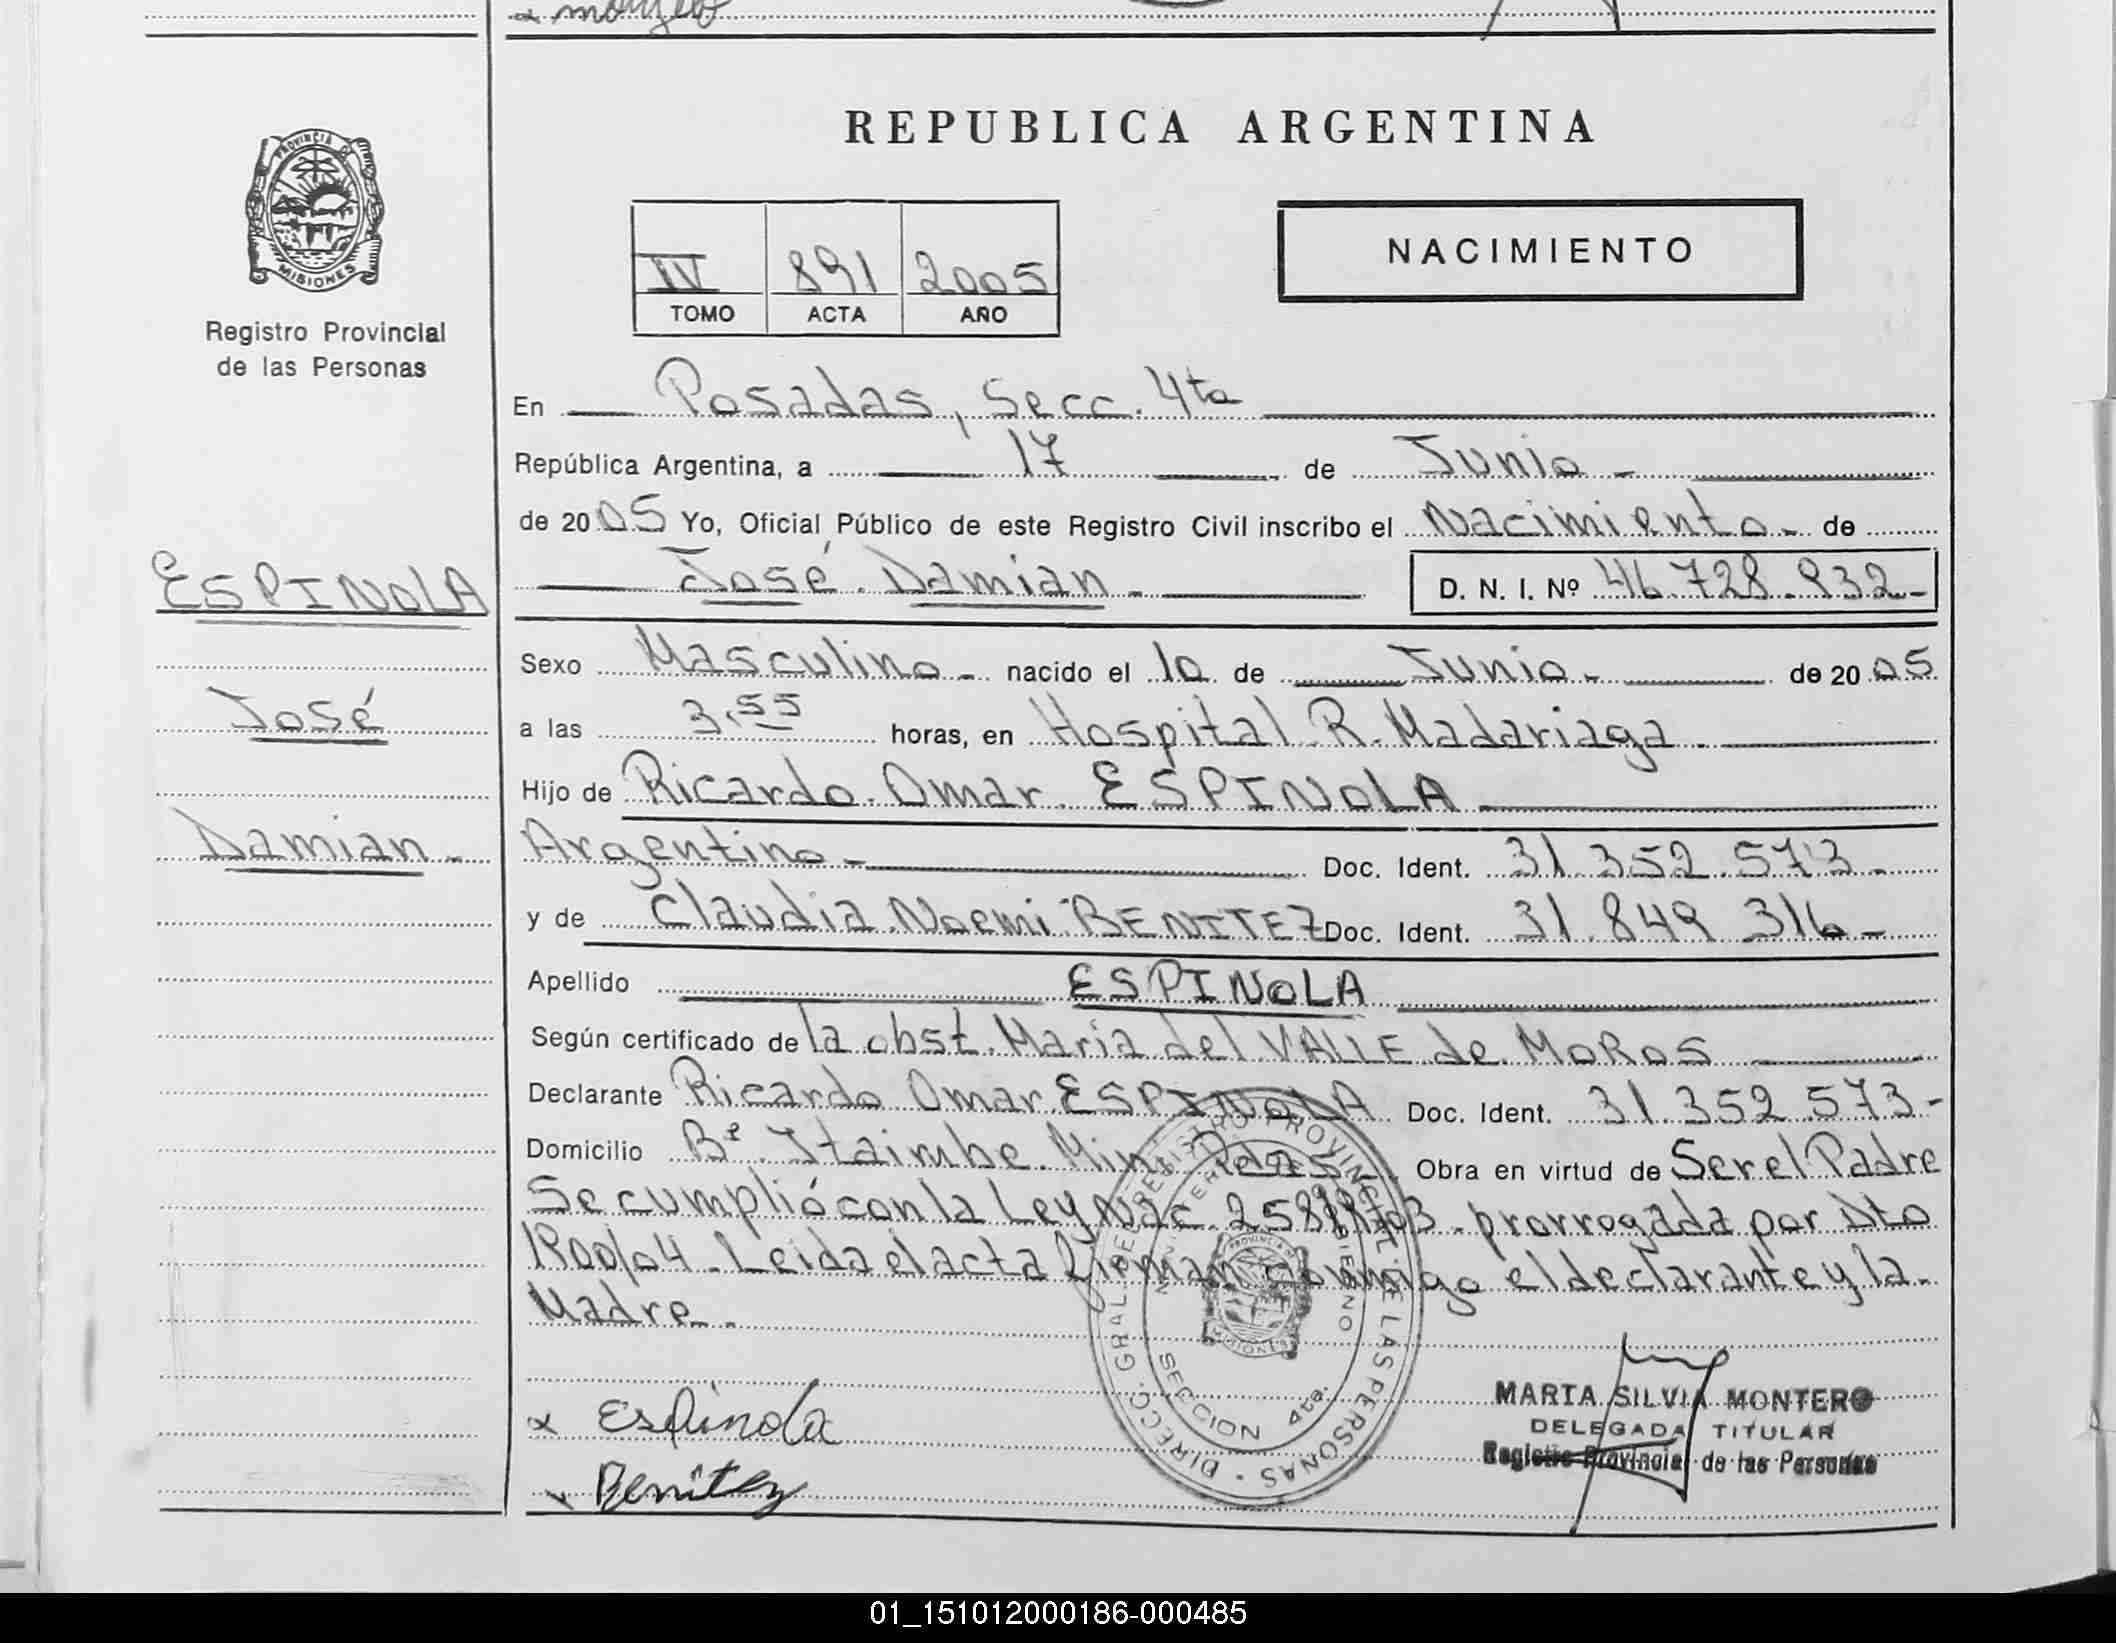 x
REPUBLICA ARGENTINA
PROVINCIA DE
MISIONES
Registro Provincial
de las Personas
NACIMIENTO
IV 891 2005
TOMO ACTA AÑO
En Posadas, Secc. 4ta
República Argentina, a 17 de Junio -
de 2005 Yo, Oficial Público de este Registro Civil inscribo el Nacimiento - de
José Damian - D. N. I. Nº 46.728.932-
ESPINOLA
José
Damian -
Sexo Masculino - nacido el 10 de Junio - de 2005
a las 3,55 horas, en Hospital R. Madariaga
Hijo de Ricardo Omar ESPINOLA
Argentino - Doc. Ident. 31.352.573-
y de Claudia Noemi BENITEZ Doc. Ident. 31.849.316-
Apellido ESPINOLA
Según certificado de la obst. Maria del VALLE de MOROS
Declarante Ricardo Omar ESPINOLA Doc. Ident. 31.352.573-
Domicilio Bº Itaimbe Mini Pdas. Obra en virtud de Ser el Padre
Se cumplió con la Ley Nac. prorrogada por Dto
1900/04 - Leida el acta firman conmigo el declarante y la
Madre -
DIRECC. GRAL. DEL REGISTRO PROVINCIAL DE LAS PERSONAS
MINISTERIO DE GOBIERNO
PROVINCIA DE
MISIONES
SECCION 4ta.
x Espinola
x Benitez
MARTA SILVIA MONTERO
DELEGADA TITULAR
Registro Provincial de las Personas
01_151012000186-000485